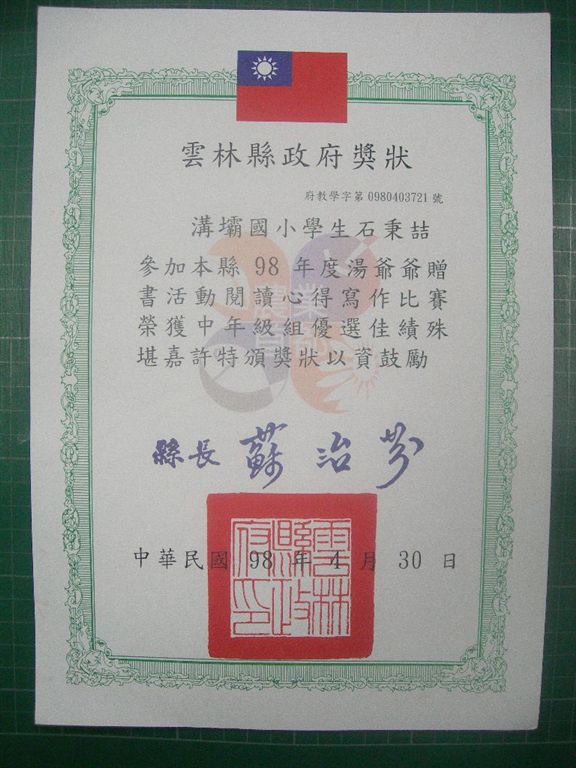 雲林縣政府獎狀
府教學字第0980403721號
溝壩國小學生石秉喆
參加本縣98年度湯爺爺贈
書活動閱讀心得寫作比賽
榮獲中年級組優選佳績殊
堪嘉許特頒獎狀以資鼓勵
縣長 蘇治芬
中華民國 98 年 4 月 30 日
雲林縣政府印